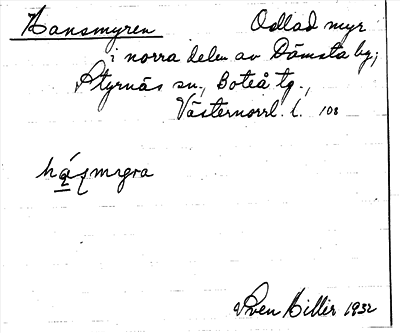 Hansmyren Odlad myr
i norra delen av Dämsta by,
Styrnäs sn., Boteå tg.,
Västernorrl. l. 108
Sven Hillir 1932